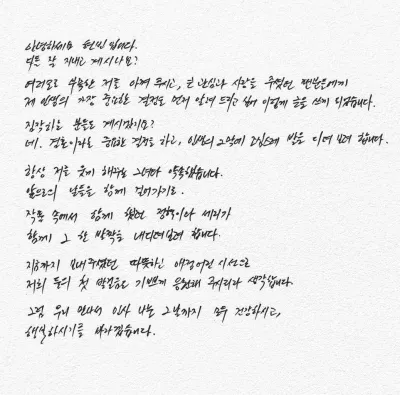 안녕하세요 현빈입니다.
다들 잘 지내고 계시나요?
여러모로 부족한 저를 아껴 주시고, 큰 관심과 사랑을 주셨던 팬분들에게
제 인생의 가장 중요한 결정을 먼저 알려 드리고 싶어 이렇게 글을 쓰게 되었습니다.
짐작하실 분들도 계시겠지요?
네. 결혼이라는 중요한 결정을 하고, 인생의 2막에 조심스레 발을 디뎌 보려 합니다.
항상 저를 웃게 해주는 그녀와 약속했습니다.
앞으로의 날들을 함께 걸어가기로.
작품 속에서 함께 했던 정혁이와 세리가
함께 그 한 발짝을 내디뎌보려 합니다.
지금까지 보내주셨던 따뜻하고 애정어린 시선으로
저희 둘의 첫 발걸음도 기쁘게 응원해 주시리라 생각합니다.
그럼 우리 만나서 인사 나눌 그날까지 모두 건강하시고,
행복하시기를 바라겠습니다.